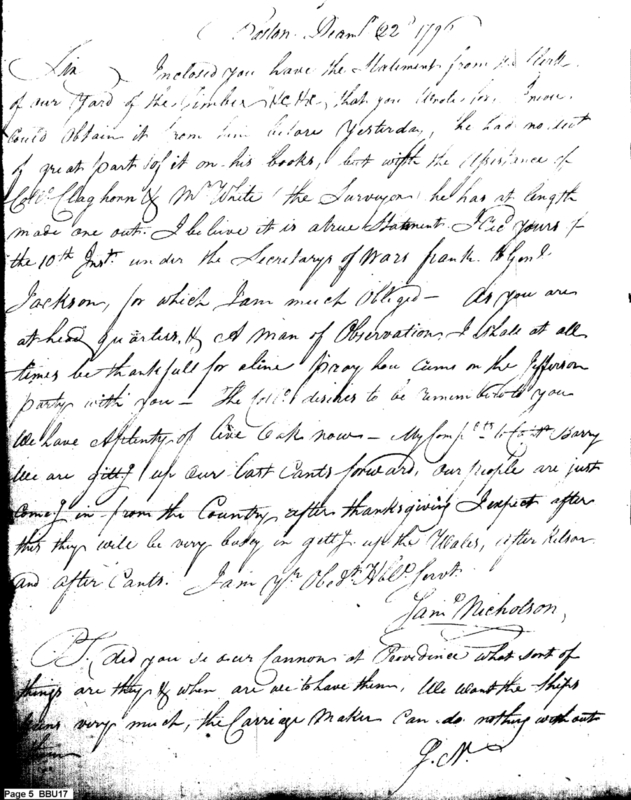 Boston Decemr 22d 1796
Sir Inclosed you have the Statement from the Clerk
of our Yard of the Timber &c &c, that you wrote for, I never
could obtain it from him before Yesterday, he had no acct
of great part of it on his books, but with the Assistance of
Coll. Claghorn & Mr White the Surveyor he has at length
made one out. I believe it is a true Statement. I recd yours of
the 10th Inst. under the Secretarys of Wars frank to Genl.
Jackson, for which I am much Obliged — As you are
at head quarters, & A man of Observation, I Shall at all
times be thankfull for a line pray how cums on the Jefferson
party with you — The Coll. desires to be remembered to you
We have A plenty of live Oak now — My Compts to Capt Barry
We are gittg up our last Cants forward, our people are just
Comeg in from the Country after thanksgiving I expect after
this they will be very busy in gettg up the Wales, after
and after Cants. I am yr Obedt Hble Servt.
Saml Nicholson,
P.S. did you se our Cannon at Providence what sort of
things are they & when are we to have them, We want the Ships
very much, the Carriage Maker can do nothing without
them
S. N.
Page 5 BBU17